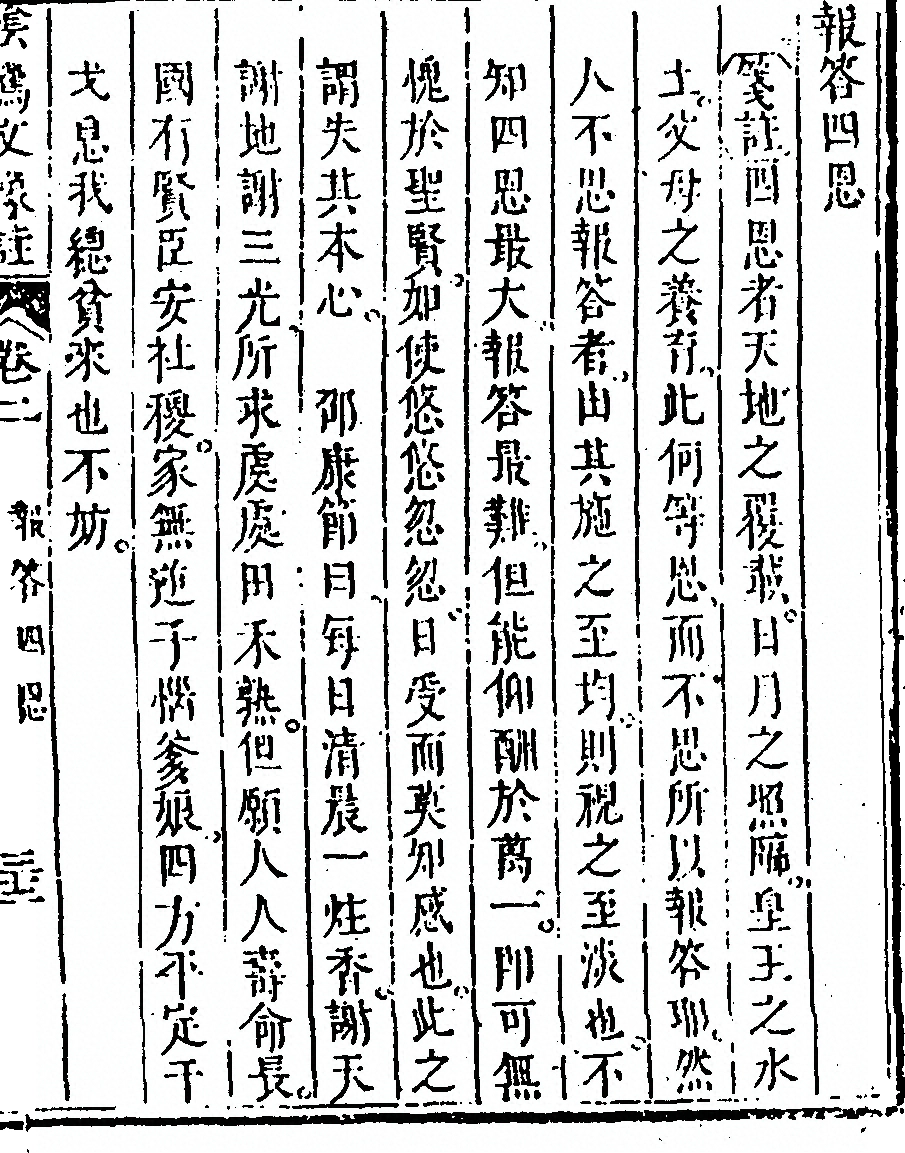 報答四恩
箋註四恩者天地之覆載。日月之照臨。皇王之水
土。父母之養育。此何等恩。而不思所以報答耶。然
人不思報答者。由其施之至均。則視之至淡也。不
知四恩最大。報答最難。但能仰酬於萬一。即可無
愧於聖賢。如使悠悠忽忽。日受而莫知感也。此之
謂失其本心。 邵康節曰。每日清晨一炷香。謝天
謝地謝三光。所求處處田禾熟。但願人人壽命長。
國有賢臣安社稷。家無逆子惱爹娘。四方平定干
戈息我總貧來也不妨。
陰騭文像註 卷二 報答四恩 三十三